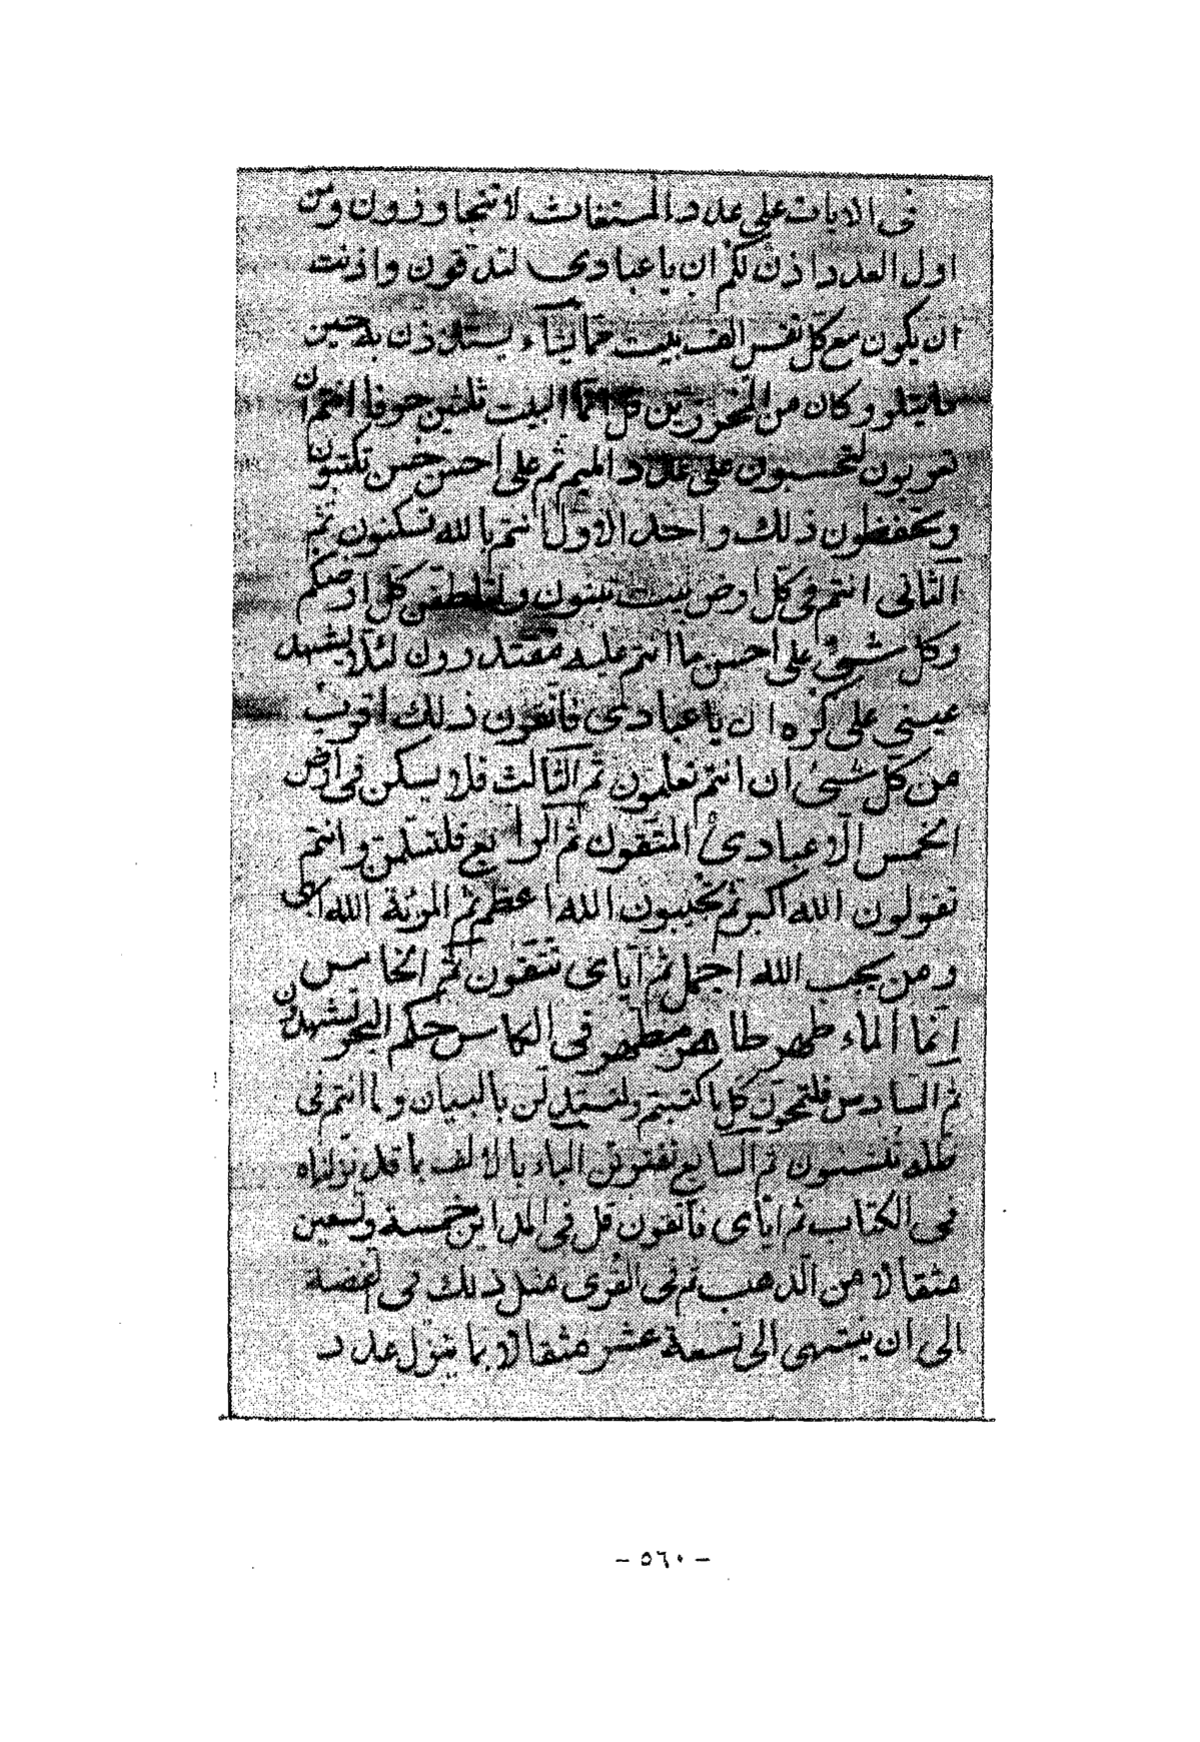 فى الايات على عدد المستغاث لا تتجاوزون ومن
اول العدد اذنت لكم ان يا عبادى لتدقون واذنت
ان يكون مع كل نفس الف بيت مما يشاء يستلذذن به حين
ما يتلو وكان من المتحرزين قل انما البيت ثلثين حرفا ان انتم
تعربون لتحسبون على عدد الميم ثم على احسن حسن تكتبون
وتحفظون ذلك واحد الاول انتم بالله تسكنون ثم
الثانى انتم فى كل ارض بيت تبنون ولتلطفن كل ارضكم
وكل شيئ على احسن ما انتم عليه مقتدرون لئلا يشهد
عينى على كره ان يا عبادى فاتقون ذلك اقرب
من كل شيئ ان انتم تعلمون ثم الثالث فلا يسكن فى ارض
الخمس الا عبادى المتقون ثم الرابع فلتسلمن وانتم
تقولون الله اكبر ثم تجيبون الله اعظم ثم المرئة الله ابهى
ومن يجب الله اجمل ثم اياى تتقون ثم الخامس
انما الماء طهر طاهر مطهر فى الكاس حكم البحر تشهدون
ثم السادس فلتمحون كل ما كتبتم ولتستدلن بالبيان وما انتم فى
ظله تنشئون ثم السابع تقترن الباء بالالف بما قد نزلناه
فى الكتاب ثم اياى فاتقون قل فى المداين خمسة وتسعين
مثقالا من الذهب ثم فى القرى مثل ذلك فى الفضة
الى ان ينتهى الى تسعة عشر مثقالا بما ينزل عدد
- ٥٦٠ -